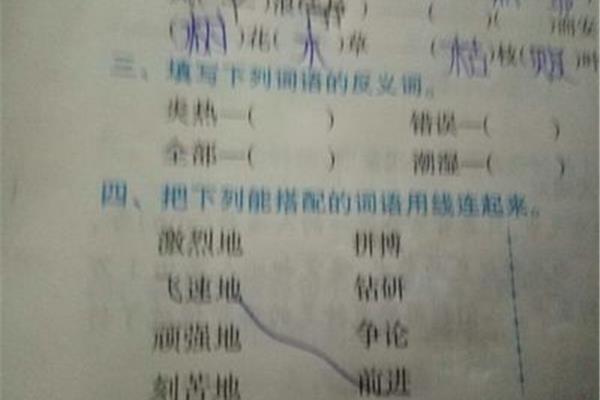 (树)花(木)草 (桔)核(
三、填写下列词语的反义词。
炎热—( ) 错误—( )
全部—( ) 潮湿—( )
四、把下列能搭配的词语用线连起来。
激烈地 拼搏
飞速地 钻研
顽强地 争论
刻苦地 前进